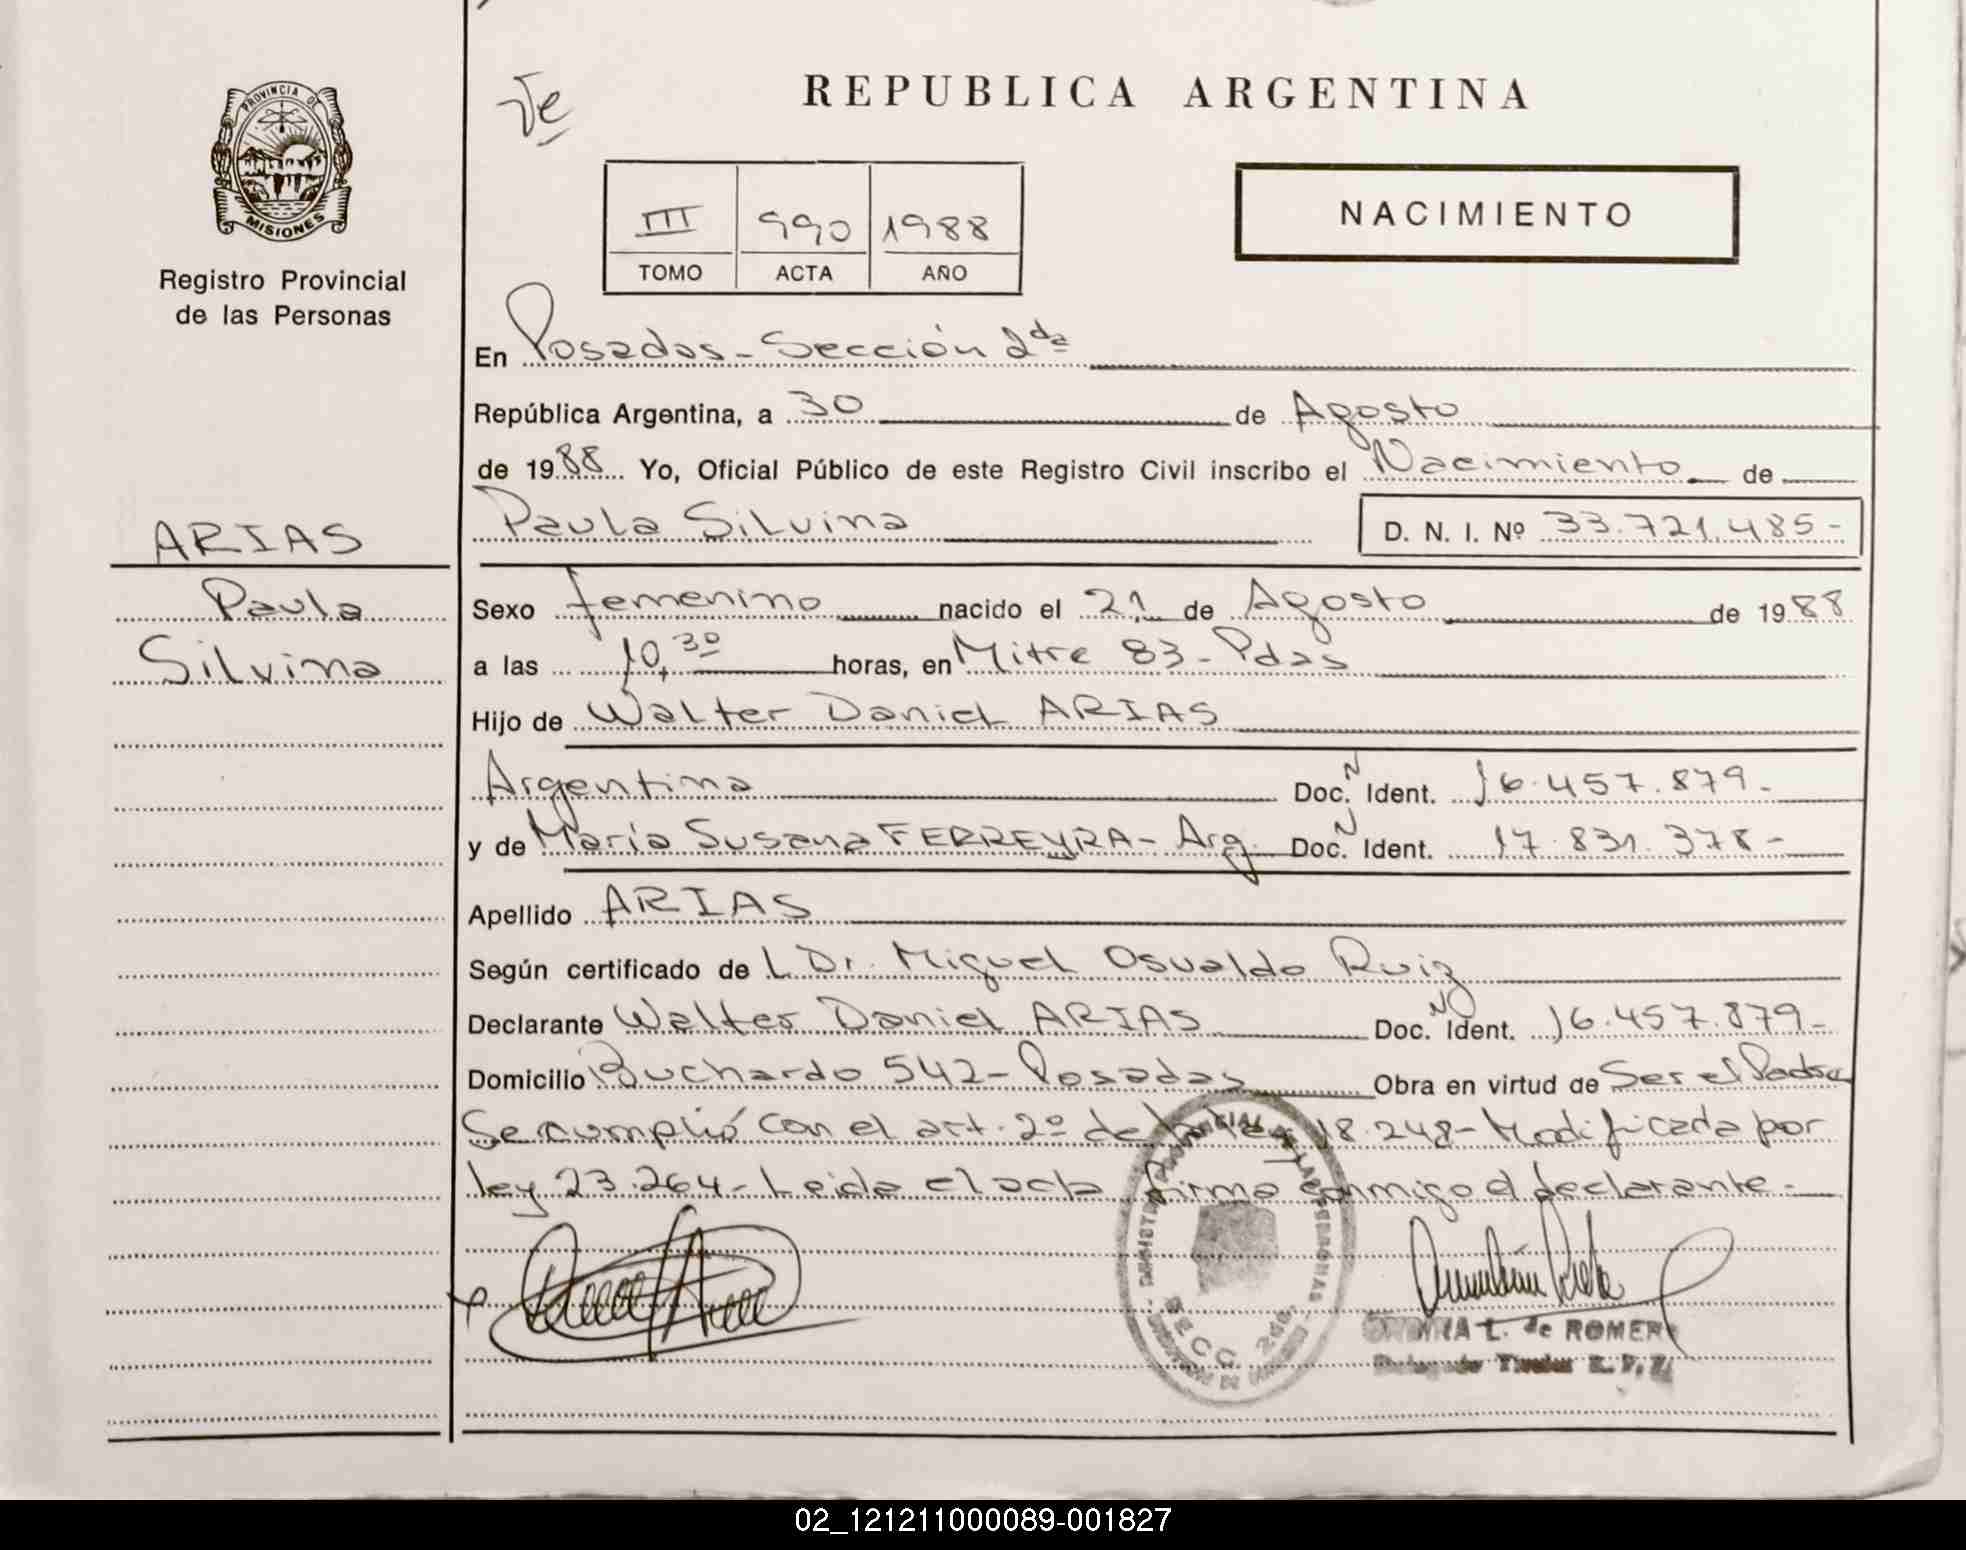 Ve
REPUBLICA ARGENTINA
PROVINCIA DE
MISIONES
Registro Provincial
de las Personas
III 990 1988
TOMO ACTA AÑO
NACIMIENTO
En Posadas - Sección 2da
República Argentina, a 30 de Agosto
de 1988 Yo, Oficial Público de este Registro Civil inscribo el Nacimiento de
Paula Silvina D. N. I. Nº 33.721.485-
ARIAS
Paula
Silvina
Sexo femenino nacido el 21 de Agosto de 1988
a las 10,30 horas, en Mitre 83 - Pdas
Hijo de Walter Daniel ARIAS
Argentina Doc. N Ident. 16.457.879-
y de María Susana FERREYRA - Arg. Doc. N Ident. 17.831.378-
Apellido ARIAS
Según certificado de L Dr. Miguel Osvaldo Ruiz
Declarante Walter Daniel ARIAS Doc. N Ident. 16.457.879-
Domicilio Buchardo 542 - Posadas Obra en virtud de Ser el Padre
Se cumplió con el art. 2º de la ley 18.248 - Modificada por
ley 23.264 - Leida el acta firma conmigo el declarante.-
PROVINCIAL DE LAS PERSONAS
SECC. 2da.
L. de ROMERO
02_121211000089-001827